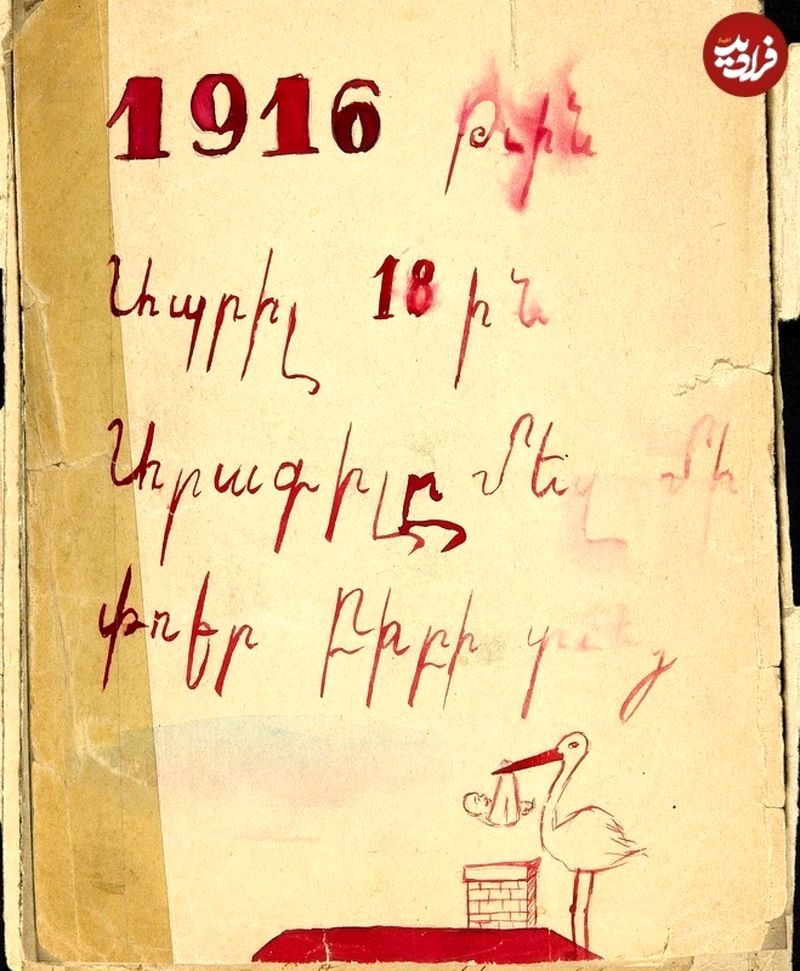 فرادید
1916 թւին
Ապրիլ 18 ին
Արագիլը մեզ մի
փոքր տուեց